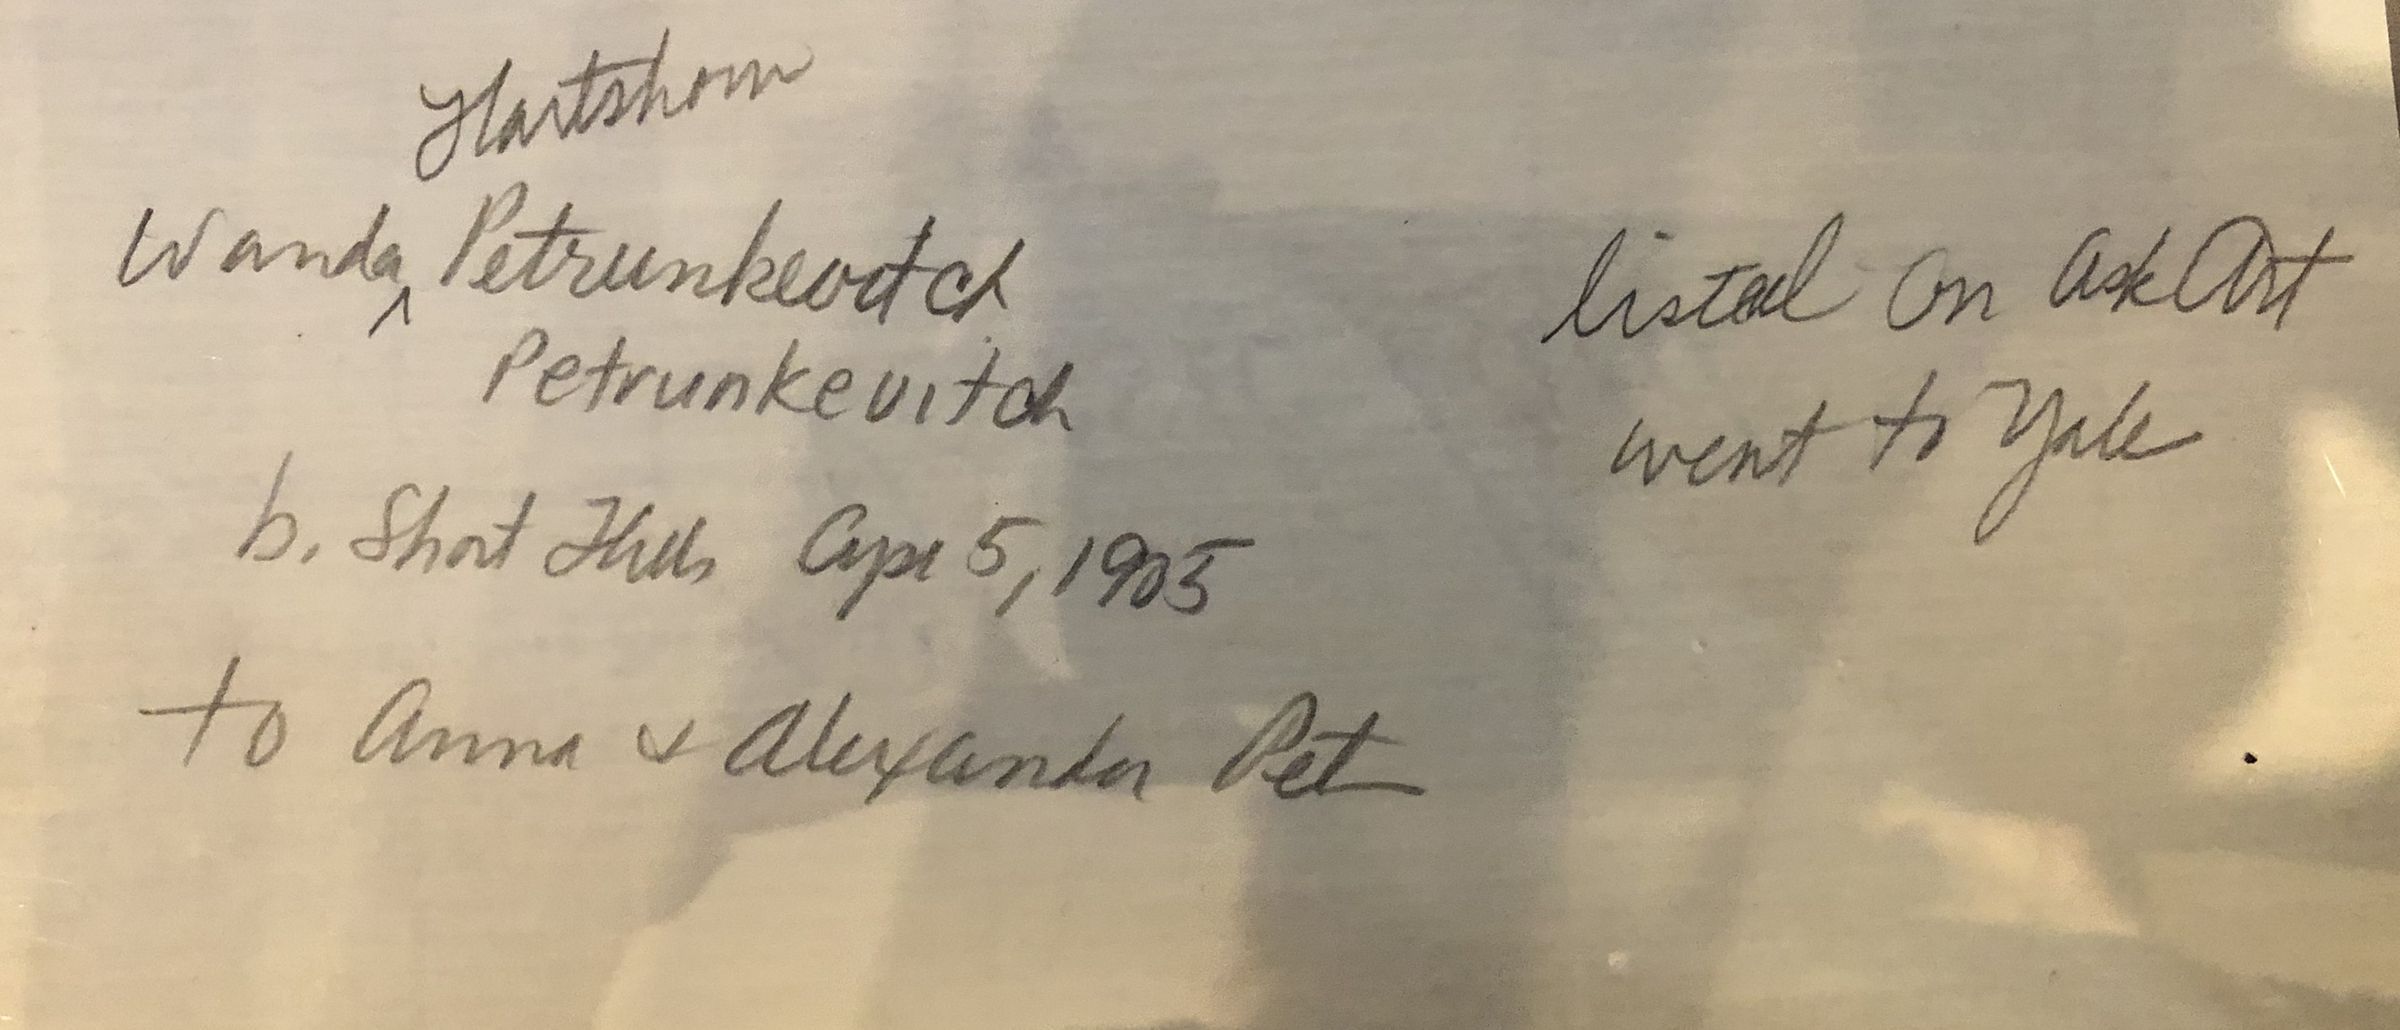 Hartshorn
Wanda ^ Petrunkevitch
Petrunkevitch
b. Short Hills Apr 5, 1905
to Anna & Alexander Pet
listed on AskArt
went to Yale